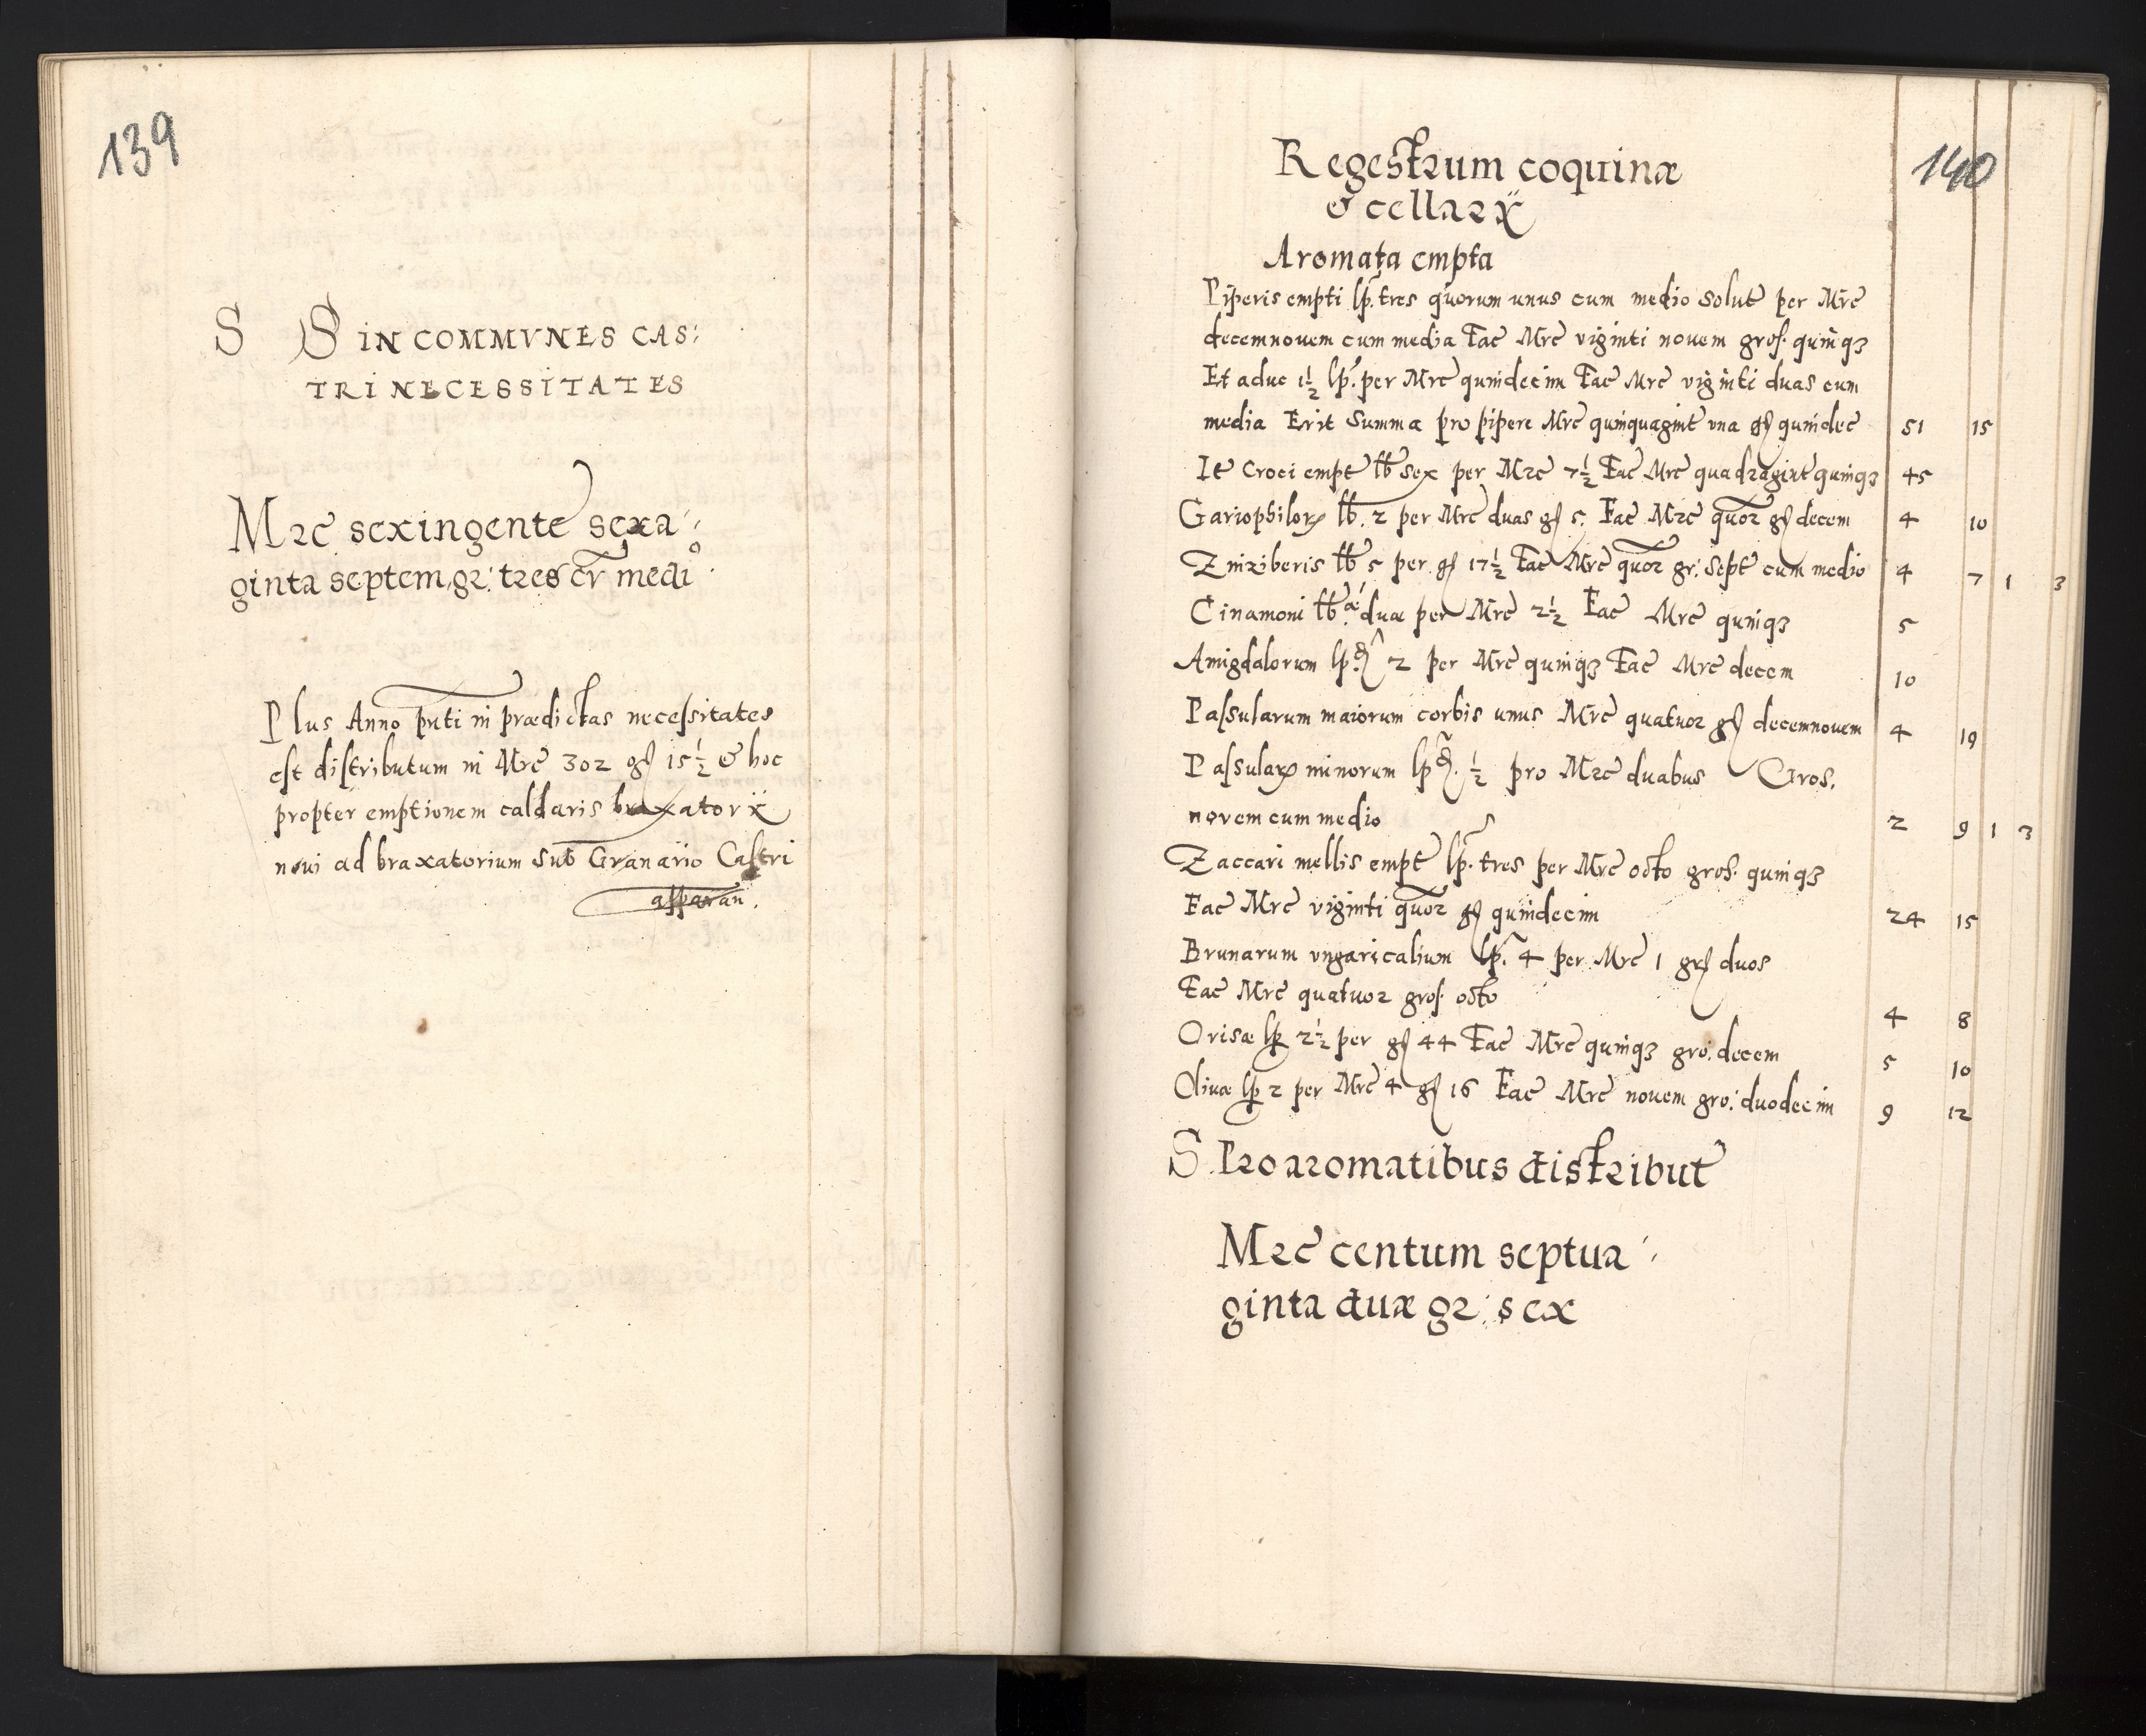 139
S S IN COMMVNES CAS:
TRI NECESSITATES
Mrc sexingente sexa:
ginta septem, gr: tres cr medio.
Plus Anno pnti in prædictas necessitates
est distributum in Mrc 302 gʃ 15½ & hoc
propter emptionem caldaris braxatorij
noui ad braxatorium sub Granario Castri
140
Regestrum coquinæ
& cellarij
Aromata empta
Piperis empti lp. tres quorum unus cum medio solut per Mrc
decemnouem cum media Fac Mrc viginti nouem gros. quinqʒ
Et aduc 1½ lp. per Mrc quindecim Fac Mrc viginti duas cum
media Erit Summa pro pipere Mrc quinquagint vna gʃ quindec 51 15
Ite Croci empt lb sex per Mrc 7½ Fac Mrc quadragint quinqʒ 45
Gariophilorꝝ lb. 2 per Mrc duas gʃ 5. Fac Mrc quor gʃ decem 4 10
Zinziberis lb 5 per gʃ 17½ Fac Mrc quor gr: Sept cum medio 4 7 1 3
Cinamoni lb.æ duæ per Mrc 2½ Fac Mrc quinqʒ 5
Amigdalorum lp. 2 per Mrc quinqʒ Fac Mrc decem 10
Passularum maiorum corbis unus Mrc quatuor gʃ decemnouem 4 19
Passularꝝ minorum lp. ½ pro Mrc duabus Gros.
novem cum medio 2 9 1 3
Zaccari mellis empt lp. tres per Mrc octo gros. quinqʒ
Fac Mrc viginti quor gʃ quindecim 24 15
Brunarum vngaricalium lp. 4 per Mrc 1 grʃ duos
Fac Mrc quatuor gros. octo 4 8
Orisæ lp 2½ per gʃ 44 Fac Mrc quinqʒ gro: decem 5 10
Oliuæ lp 2 per Mrc 4 gʃ 16 Fac Mrc nouem gro: duodecim 9 12
S. Pro aromatibus distribut
Mrc centum septua:
ginta duæ gr: sex